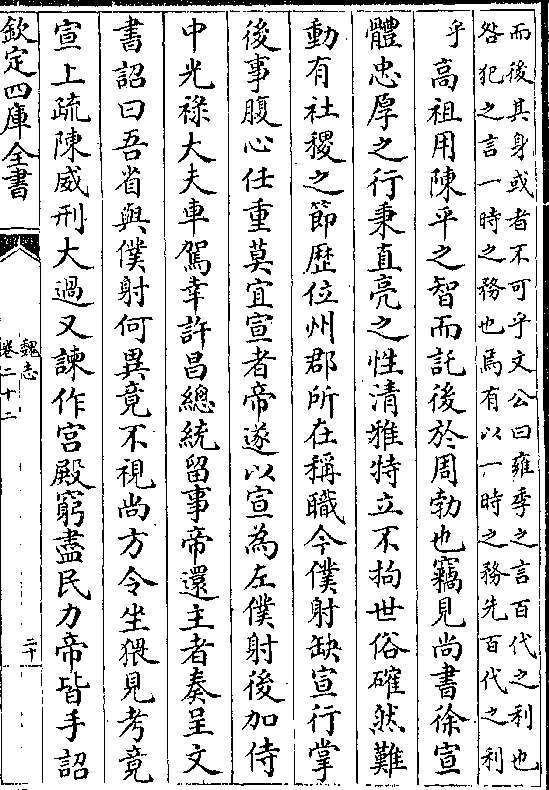 而後其身或者不可乎文公曰雍季之言百代之利也
咎犯之言一時之務也焉有以一時之務先百代之利
乎高祖用陳平之智而託後於周勃也竊見尚書徐宣
體忠厚之行秉直亮之性清雅特立不拘世俗確然難
動有社稷之節歴位州郡所在稱職今僕射缺宣行掌
後事腹心任重莫宜宣者帝遂以宣為左僕射後加侍
中光祿大夫車駕幸許昌總統留事帝還主者奏呈文
書詔曰吾省與僕射何異竟不視尚方令坐猥見考竟
宣上疏陳威刑大過又諫作宮殿窮盡民力帝皆手詔
欽定四庫全書
魏志
卷二十二
二十